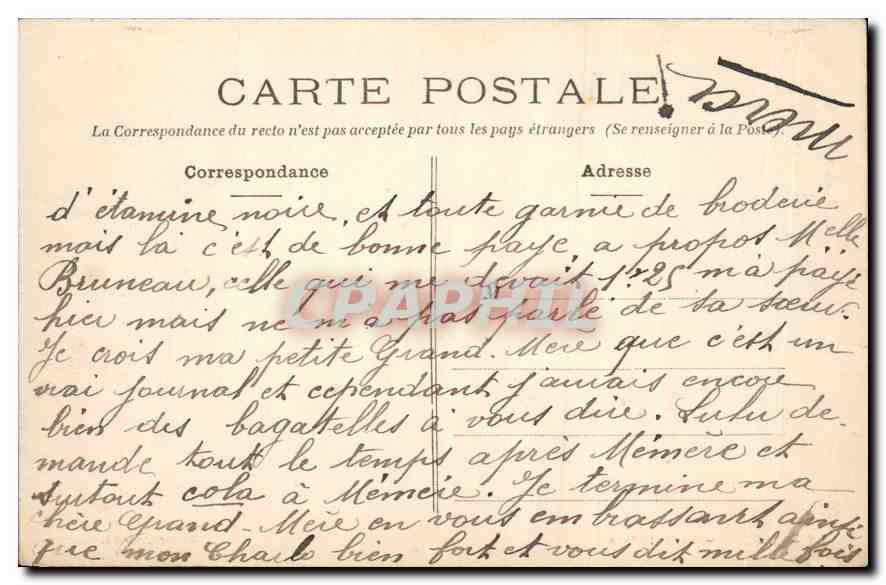 CARTE POSTALE
La Correspondance du recto n'est pas acceptée par tous les pays étrangers (Se renseigner à la Poste).
Correspondance
Adresse
d'étamine noire, et toute garnie de broderie
mais là c'est de bonne paye, a propos Melle
Bruneau, celle qui me devait 1f25 m'a payé
hier mais ne m'a pas parlé de sa sœur.
Je crois ma petite Grand-Mère que c'est un
vrai journal et cependant j'aurais encore
bien des bagatelles à vous dire. Lulu de-
mande tout le temps après Mémère et
surtout cola à Mémère. Je termine ma
chère Grand-Mère en vous embrassant ainsi
que mon Charlo bien fort et vous dit mille fois
CPAPHIL